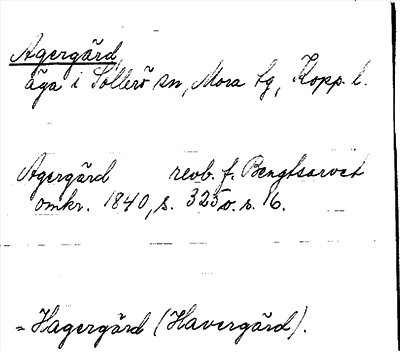 Agergård,
äga i Sollerö sn, Mora tg, Kopp. l.
Agergård revb. f. Bengtsarvet
omkr. 1840, s. 325 o. s. 16.
= Hagergård (Havergård).